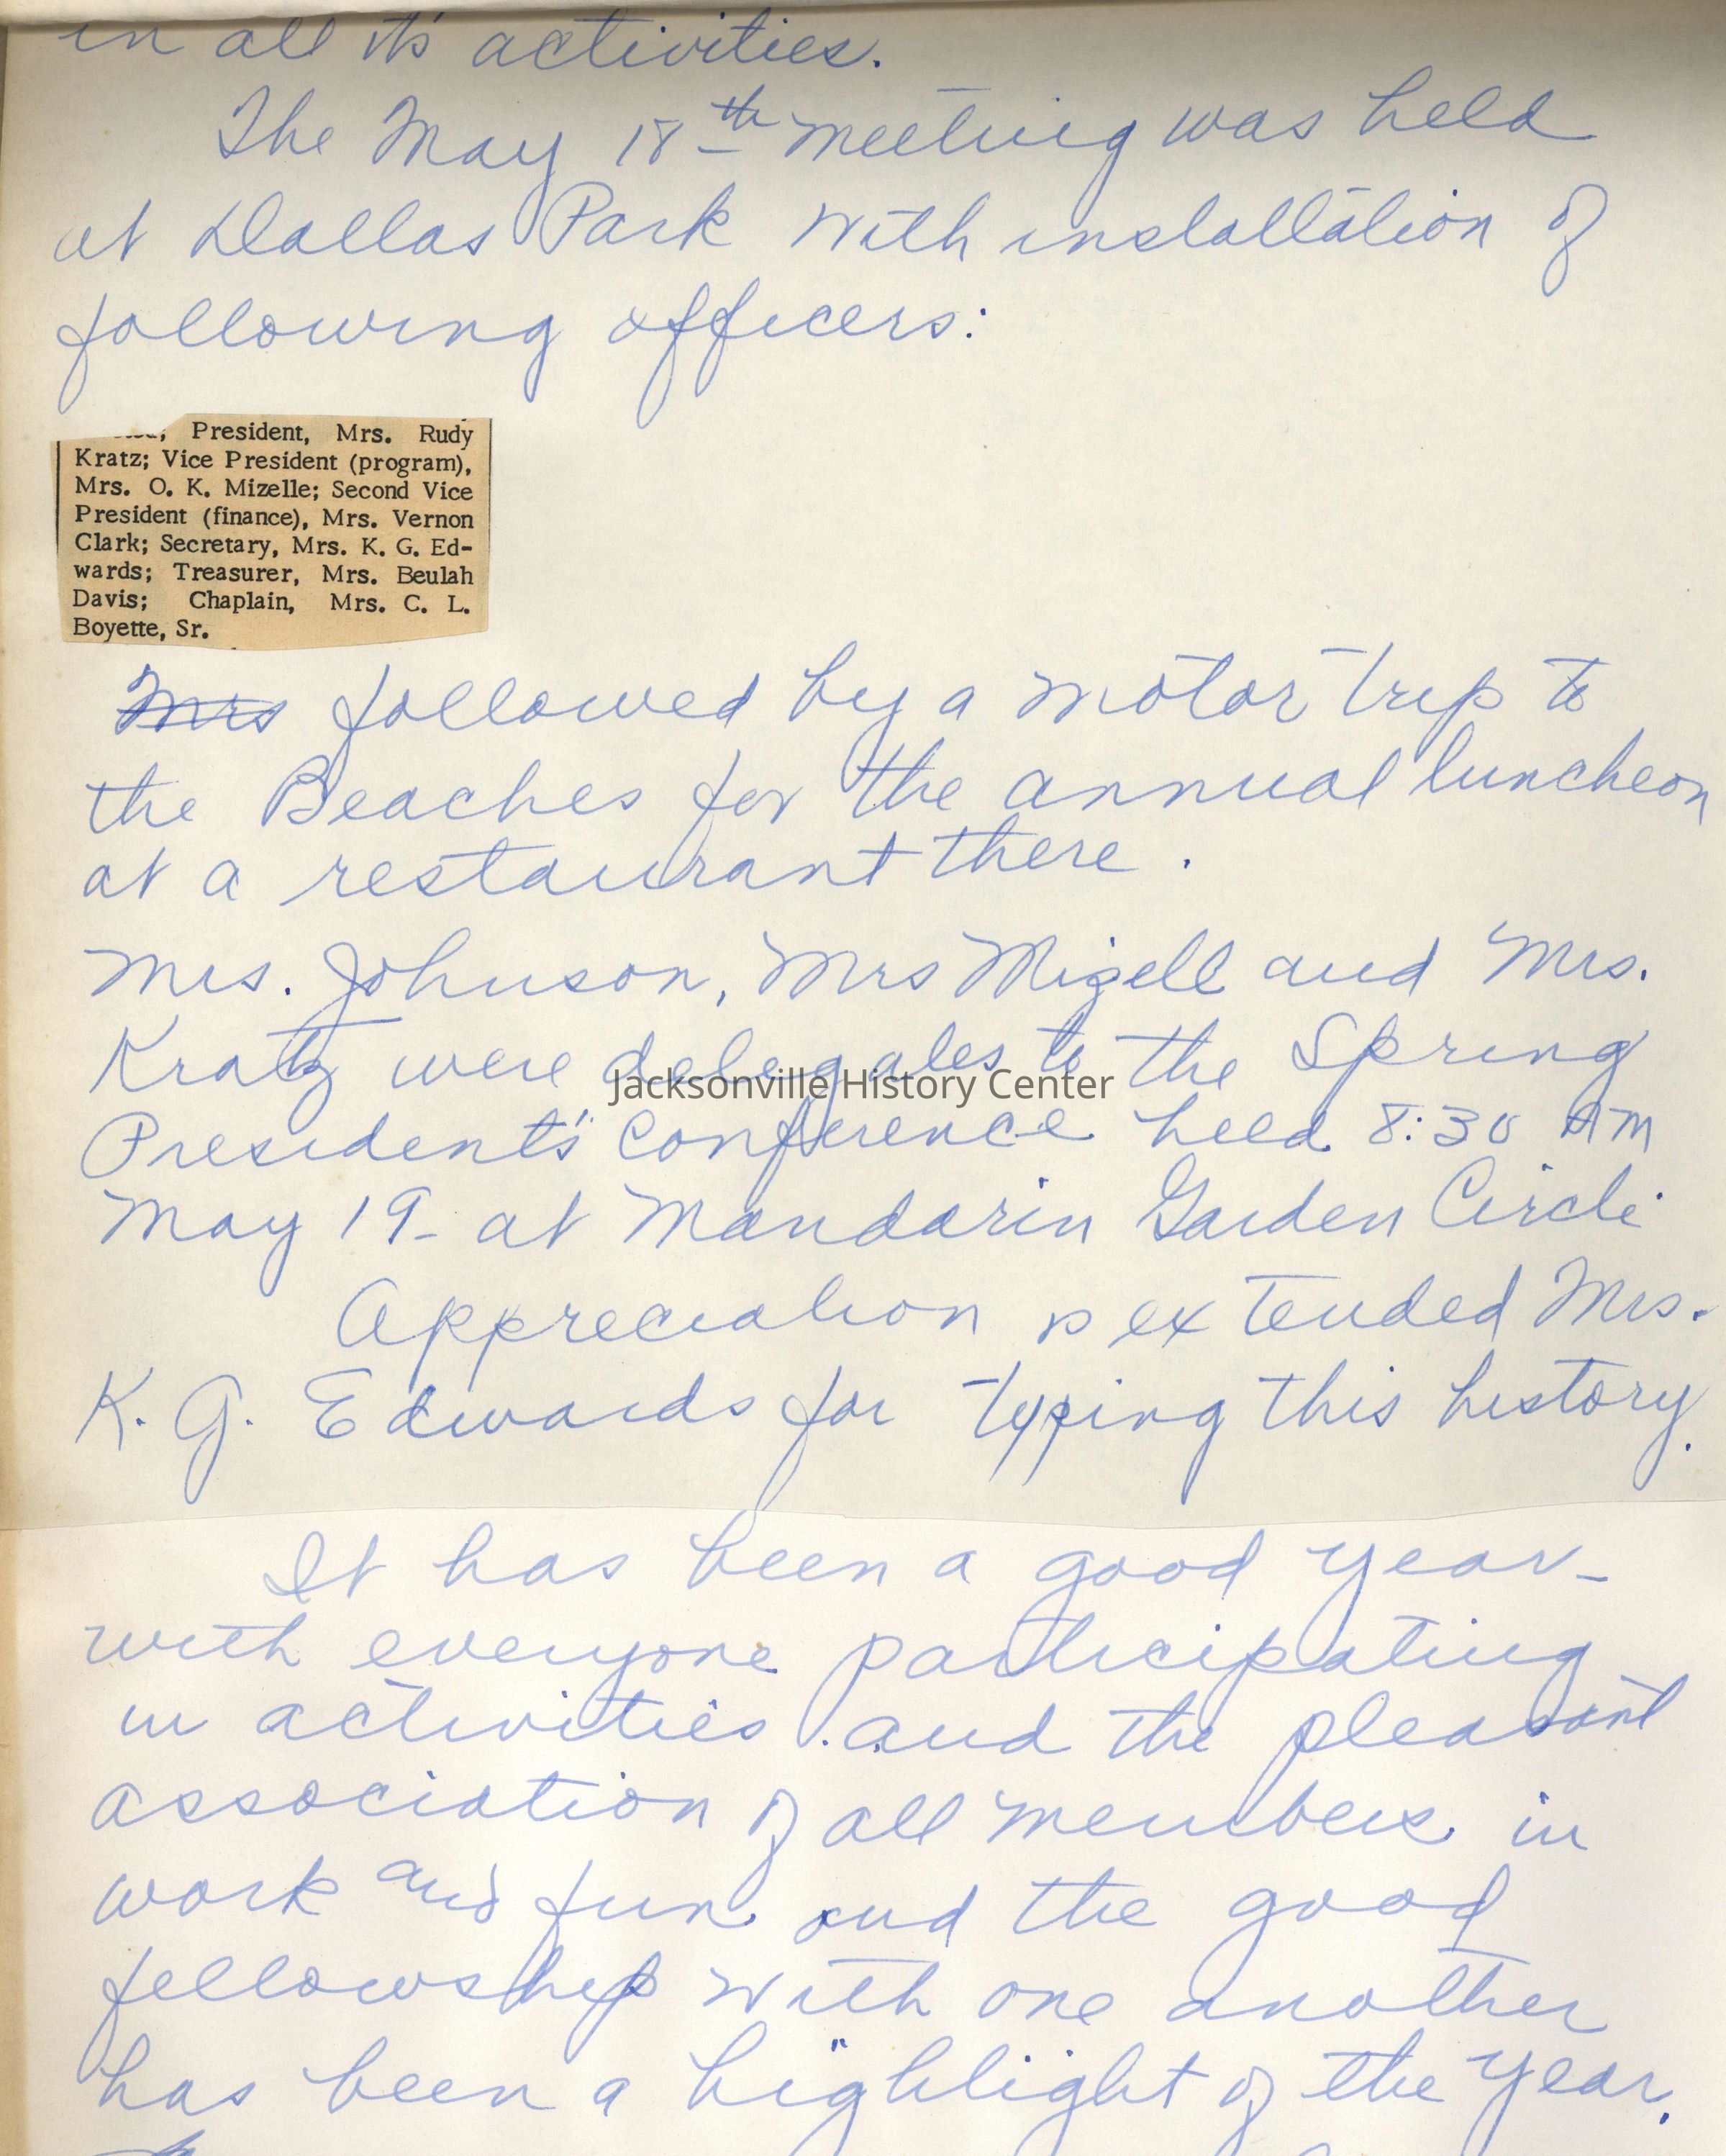 in all it's activities.
The May 18th meeting was held
at Dallas Park with installation of
following officers:
President, Mrs. Rudy
Kratz; Vice President (program),
Mrs. O. K. Mizelle; Second Vice
President (finance), Mrs. Vernon
Clark; Secretary, Mrs. K. G. Ed-
wards; Treasurer, Mrs. Beulah
Davis; Chaplain, Mrs. C. L.
Boyette, Sr.
Mrs followed by a motor trip to
the Beaches for the annual luncheon
at a restaurant there.
Mrs. Johnson, Mrs Mizell and Mrs.
Kratz were delegates to the Spring
Jacksonville History Center
President's Conference held 8:30 AM
May 19- at Mandarin Garden Circle
Appreciation is extended Mrs.
K. G. Edwards for typing this history.
It has been a good year-
with everyone participating
in activities and the pleasant
association of all members in
work and fun and the good
fellowship with one another
has been a highlight of the year.